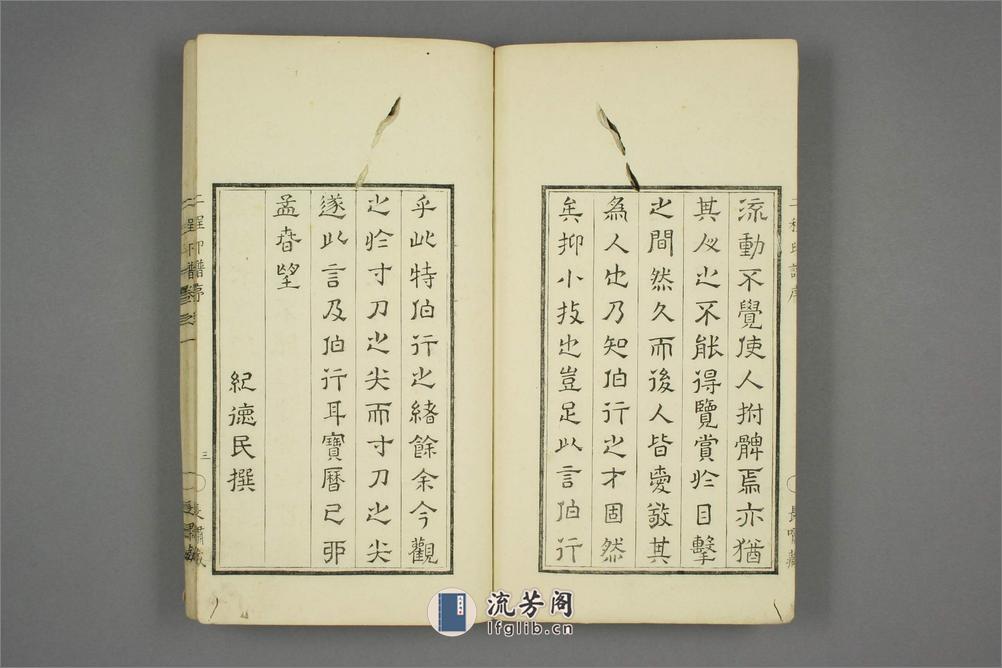 流動不覺使人拊髀焉亦猶
其人之不能得覽賞於目擊
之間然久而後人皆愛敬其
為人也乃知伯行之才固然
矣抑小技也豈足以言伯行
乎此特伯行之緒餘余今觀
之於寸刀之尖而寸刀之尖
遂此言及伯行耳寶曆己卯
孟春望
紀德民撰
二程印譜序
三
長嘯藏
流芳阁
lfglib.cn